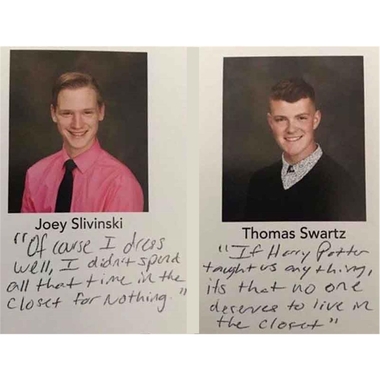 Joey Slivinski
"Of course I dress
well, I didn't spend
all that time in the
closet for nothing."
Thomas Swartz
"If Harry Potter
taught us anything,
its that no one
deserves to live in
the closet"